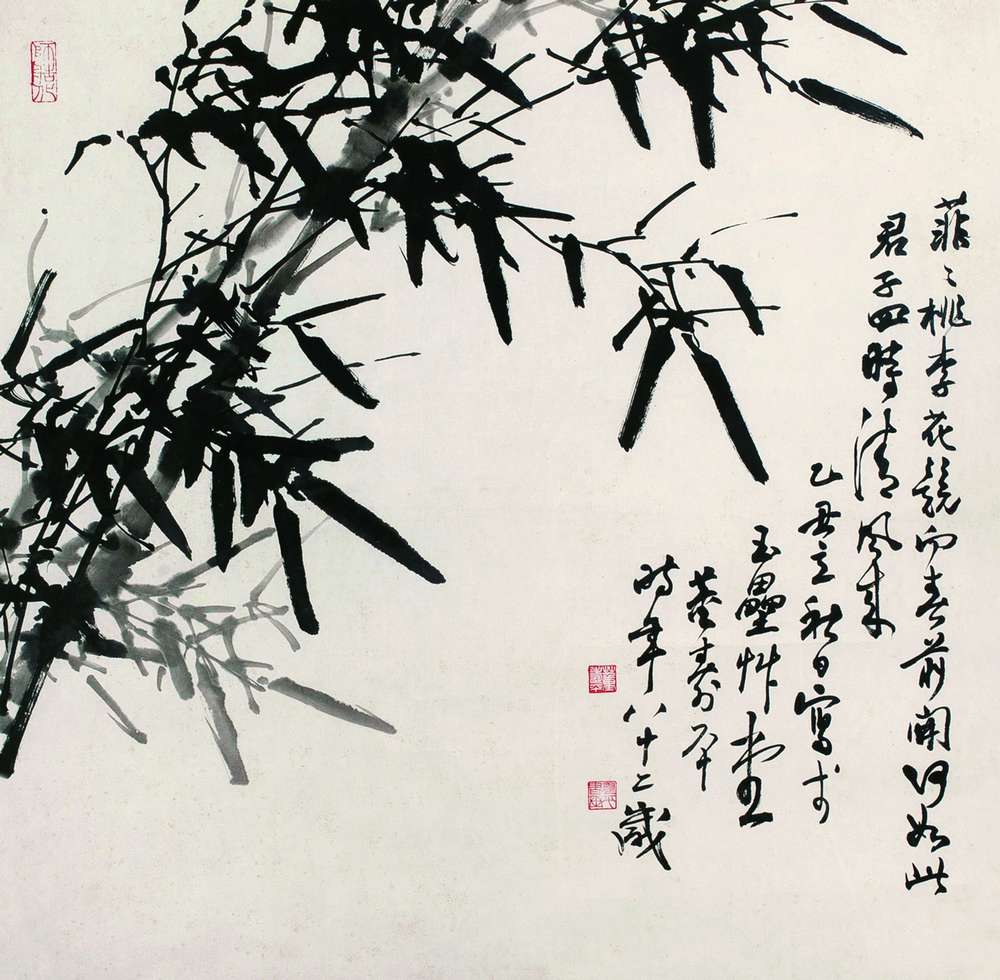 菲〻桃李花競向春前開何如此
君子四時清風來
乙丑立秋日寫于
玉壘艸堂
董壽平
時年八十二歲